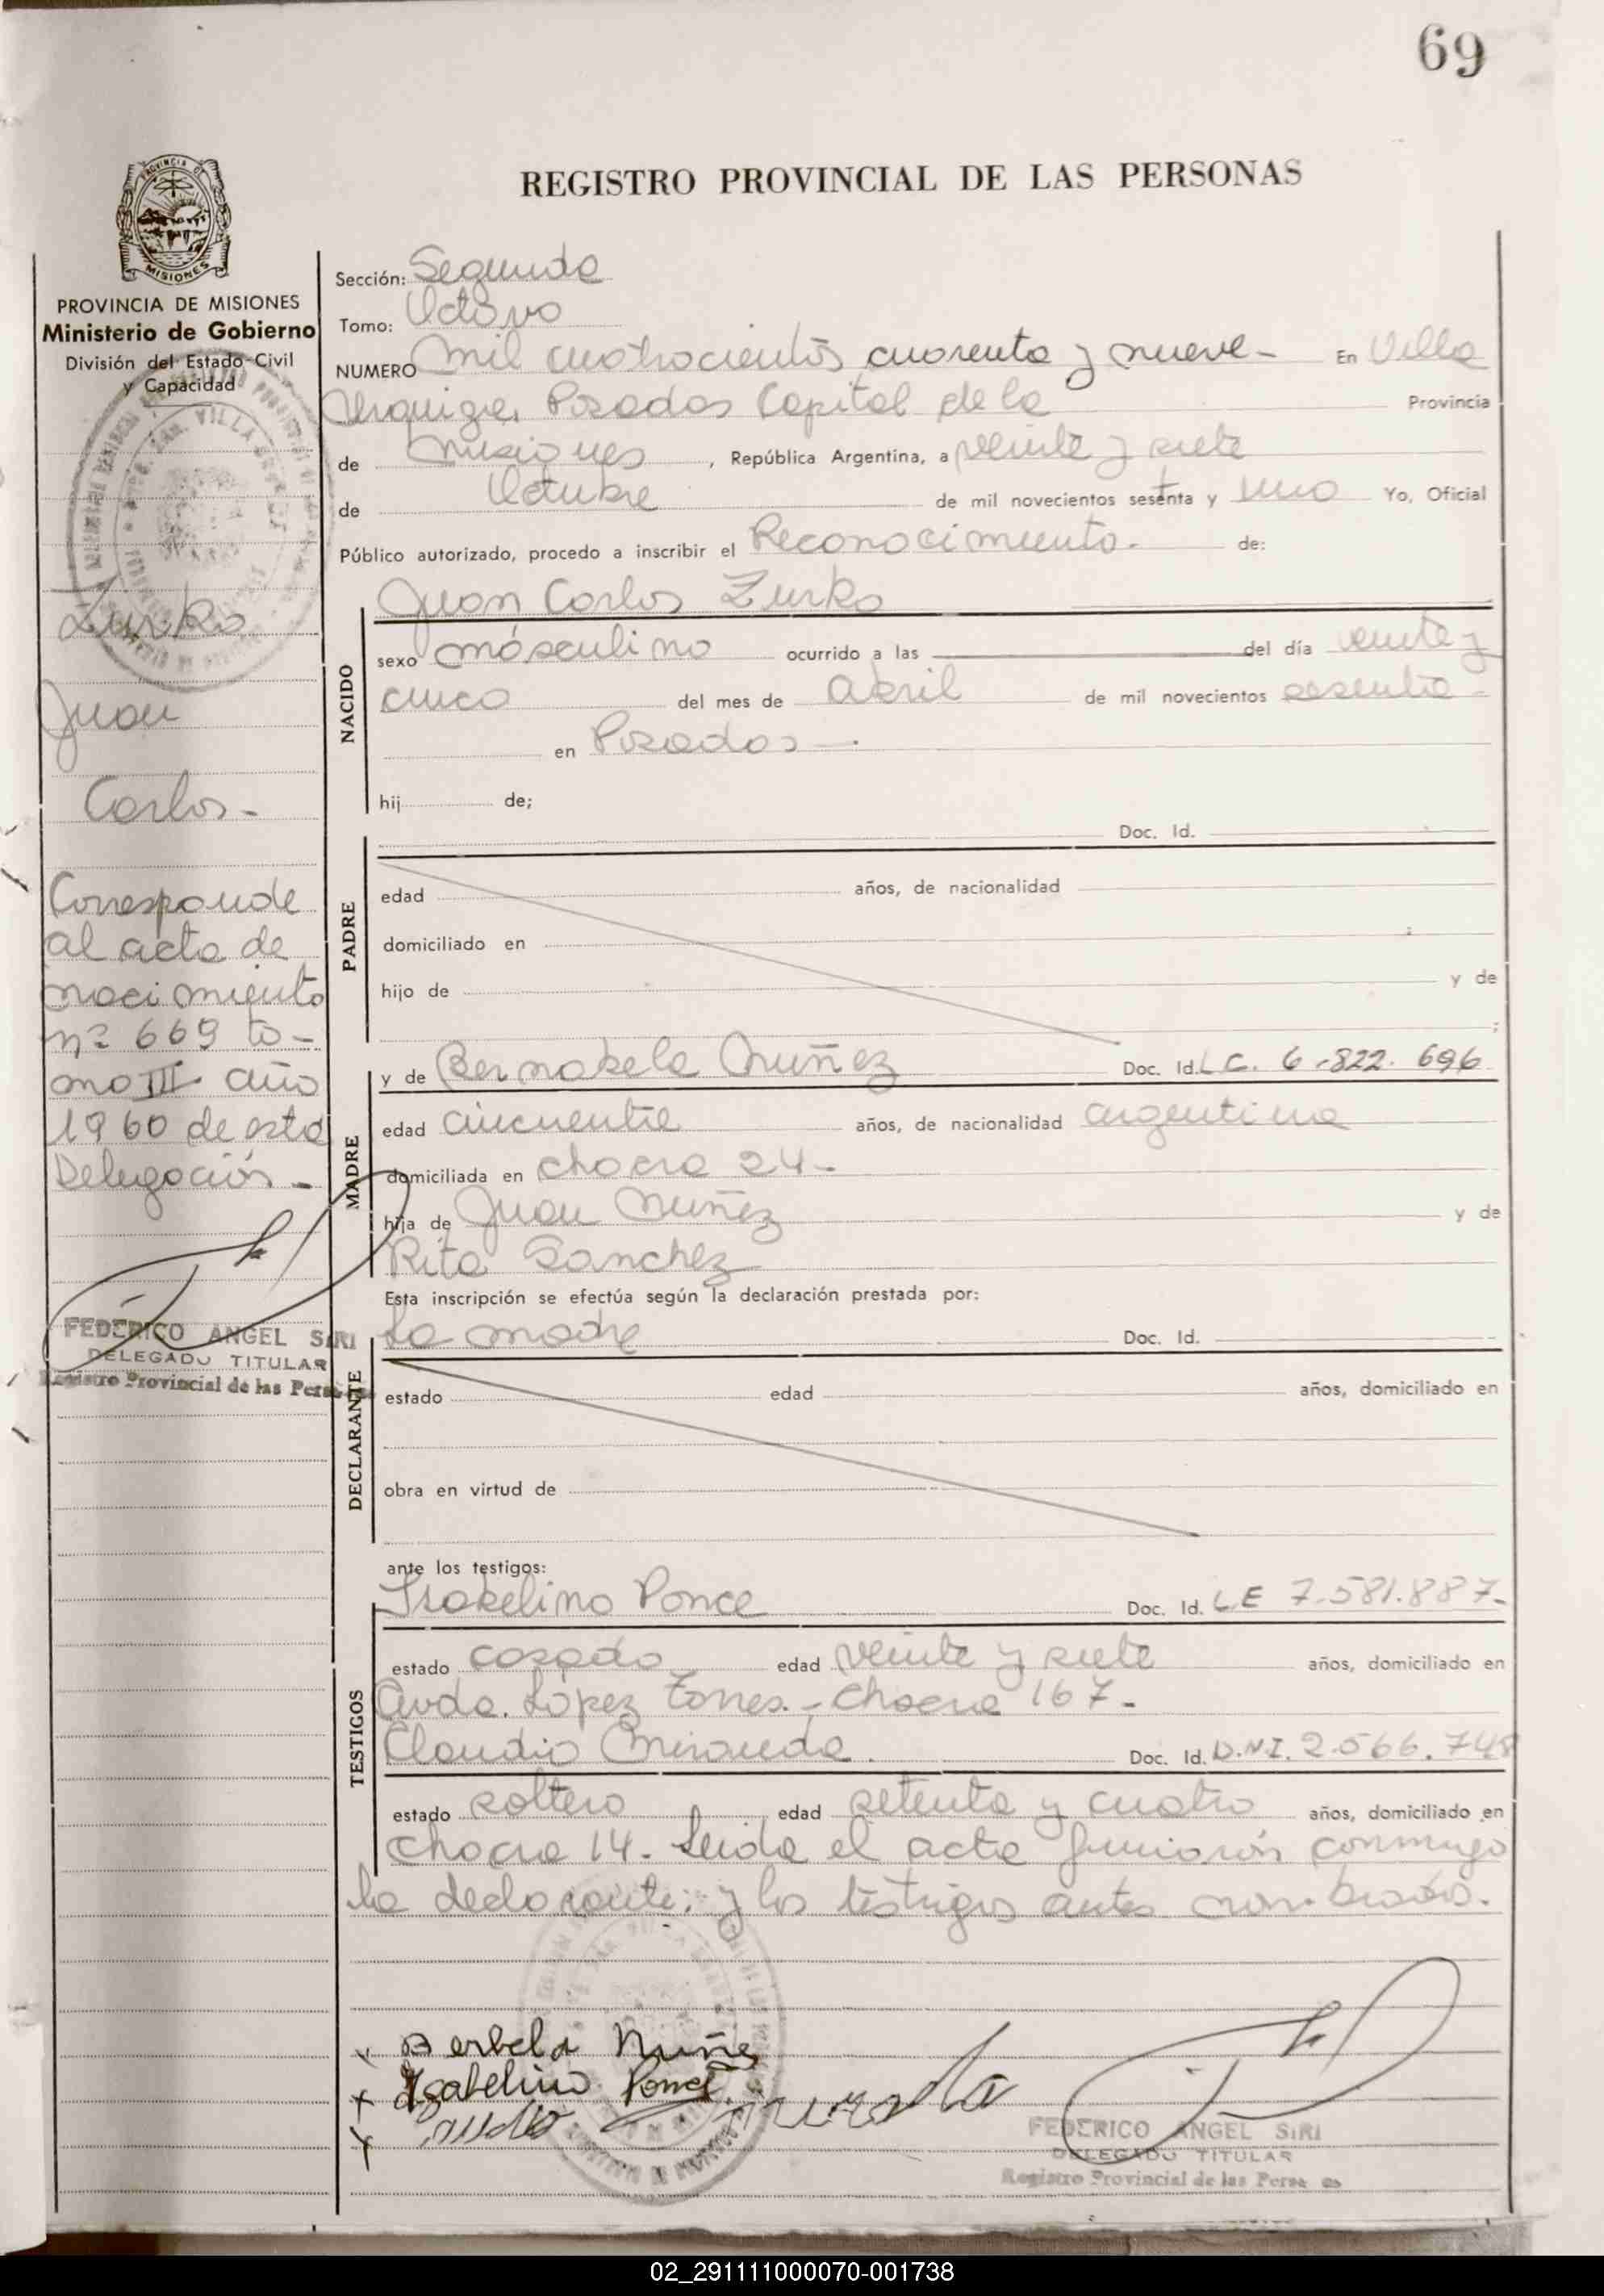 69
PROVINCIA DE MISIONES
REGISTRO PROVINCIAL DE LAS PERSONAS
PROVINCIA DE MISIONES
Ministerio de Gobierno
División del Estado Civil
y Capacidad
Zurko
Juan
Carlos-
Corresponde
al acta de
nacimiento
nº 669 to-
mo III año
1960 de esta
Delegación-
FEDERICO ANGEL SIRI
DELEGADO TITULAR
Registro Provincial de las Perso
Sección: Segunda
Tomo: Octavo
NUMERO mil cuatrocientos cuarenta y nueve- En Villa
Urquiza, Posadas Capital de la Provincia
de Misiones, República Argentina, a veinte y siete
de Octubre de mil novecientos sesenta y uno Yo, Oficial
Público autorizado, procedo a inscribir el Reconocimiento- de:
Juan Carlos Zurko
NACIDO
sexo másculino ocurrido a las del día veinte y
cinco del mes de abril de mil novecientos sesenta-
en Posadas-.
hij de;
Doc. Id.
PADRE
edad años, de nacionalidad
domiciliado en ;
hijo de y de
;
y de Bernabela Nuñez Doc. Id. L.C. 6.822.696
MADRE
edad cincuenta años, de nacionalidad argentina
domiciliada en chacra 24-
hija de Juan Nuñez y de
Rita Sanchez
Esta inscripción se efectúa según la declaración prestada por:
La madre Doc. Id.
DECLARANTE
estado edad años, domiciliado en
obra en virtud de
ante los testigos:
Isabelino Ponce Doc. Id. L.E 7.581.887-
TESTIGOS
estado casado edad veinte y siete años, domiciliado en
avda. López Torres.- chacra 167-
Claudio Miranda. Doc. Id. D.N.I. 2.566.748
estado soltero edad setenta y cuatro años, domiciliado en
chacra 14. Leida el acta firmarón conmigo
la declarante; y los testigos antes nombrados.
x Berbela Nuñe
x Isabelino Ponce
x
FEDERICO ANGEL SIRI
DELEGADO TITULAR
Registro Provincial de las Perso as
02_291111000070-001738